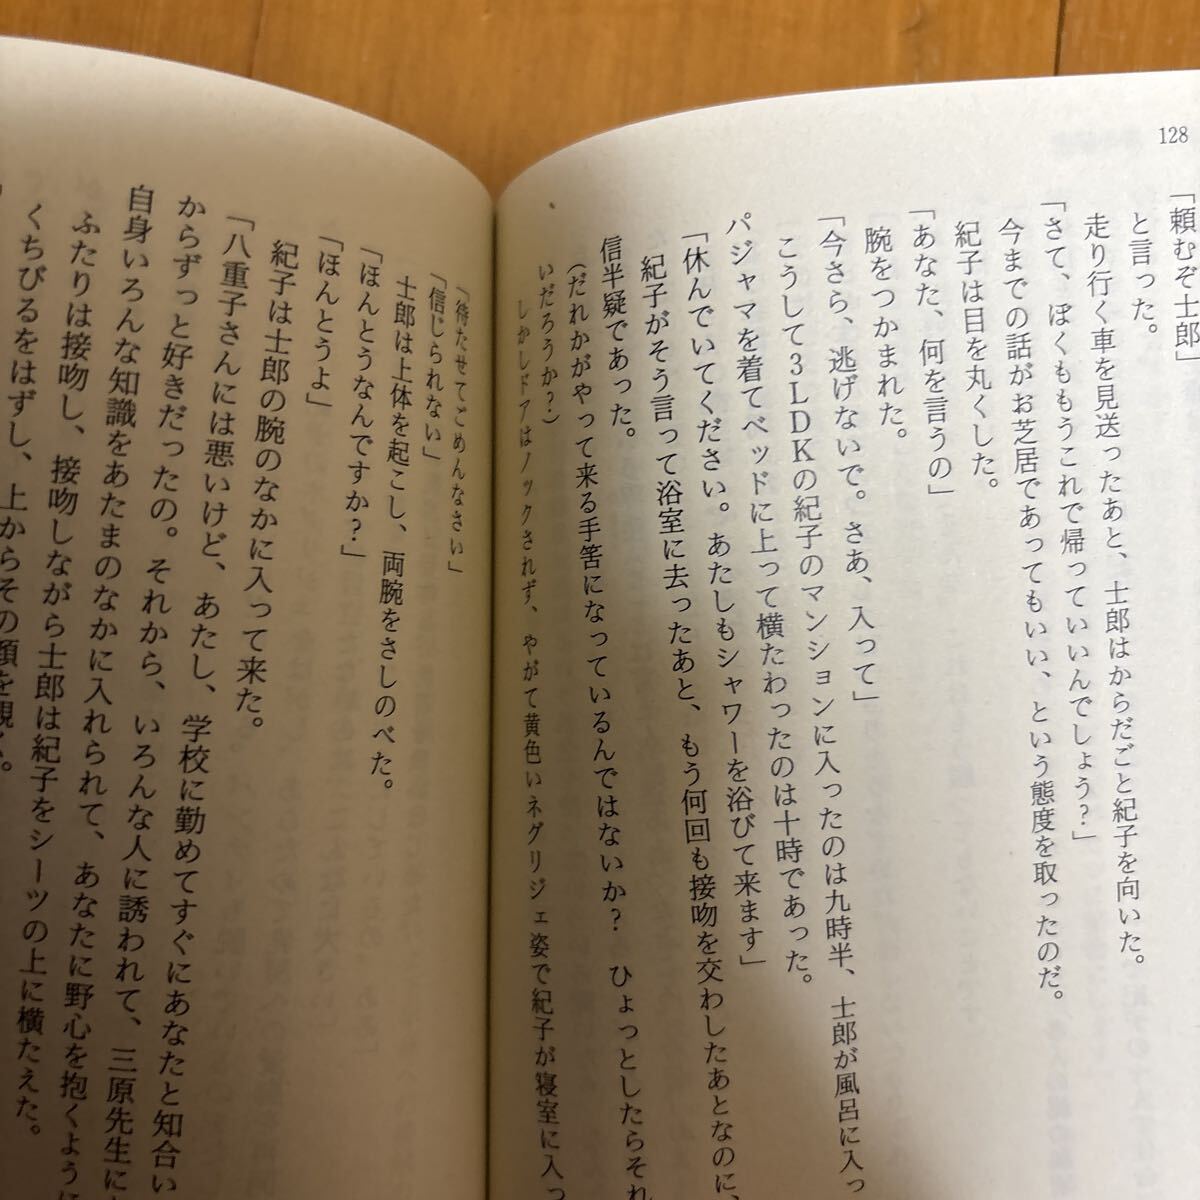 128
「頼むぞ士郎」
と言った。
走り行く車を見送ったあと、士郎はからだごと紀子を向いた。
「さて、ぼくももうこれで帰っていいんでしょう？」
今までの話がお芝居であってもいい、という態度を取ったのだ。
紀子は目を丸くした。
「あなた、何を言うの」
腕をつかまれた。
「今さら、逃げないで。さあ、入って」
こうして３ＬＤＫの紀子のマンションに入ったのは九時半、士郎が風呂に入っ
パジャマを着てベッドに上って横たわったのは十時であった。
「休んでいてください。あたしもシャワーを浴びて来ます」
紀子がそう言って浴室に去ったあと、もう何回も接吻を交わしたあとなのに、
信半疑であった。
（だれかがやって来る手筈になっているんではないか？　ひょっとしたらそれ
いだろうか？）
しかしドアはノックされず、やがて黄色いネグリジェ姿で紀子が寝室に入っ
「待たせてごめんなさい」
「信じられない」
士郎は上体を起こし、両腕をさしのべた。
「ほんとうなんですか？」
「ほんとうよ」
紀子は士郎の腕のなかに入って来た。
「八重子さんには悪いけど、あたし、学校に勤めてすぐにあなたと知合い
からずっと好きだったの。それから、いろんな人に誘われて、三原先生に
自身いろんな知識をあたまのなかに入れられて、あなたに野心を抱くように
ふたりは接吻し、接吻しながら士郎は紀子をシーツの上に横たえた。
くちびるをはずし、上からその顔を覗く。